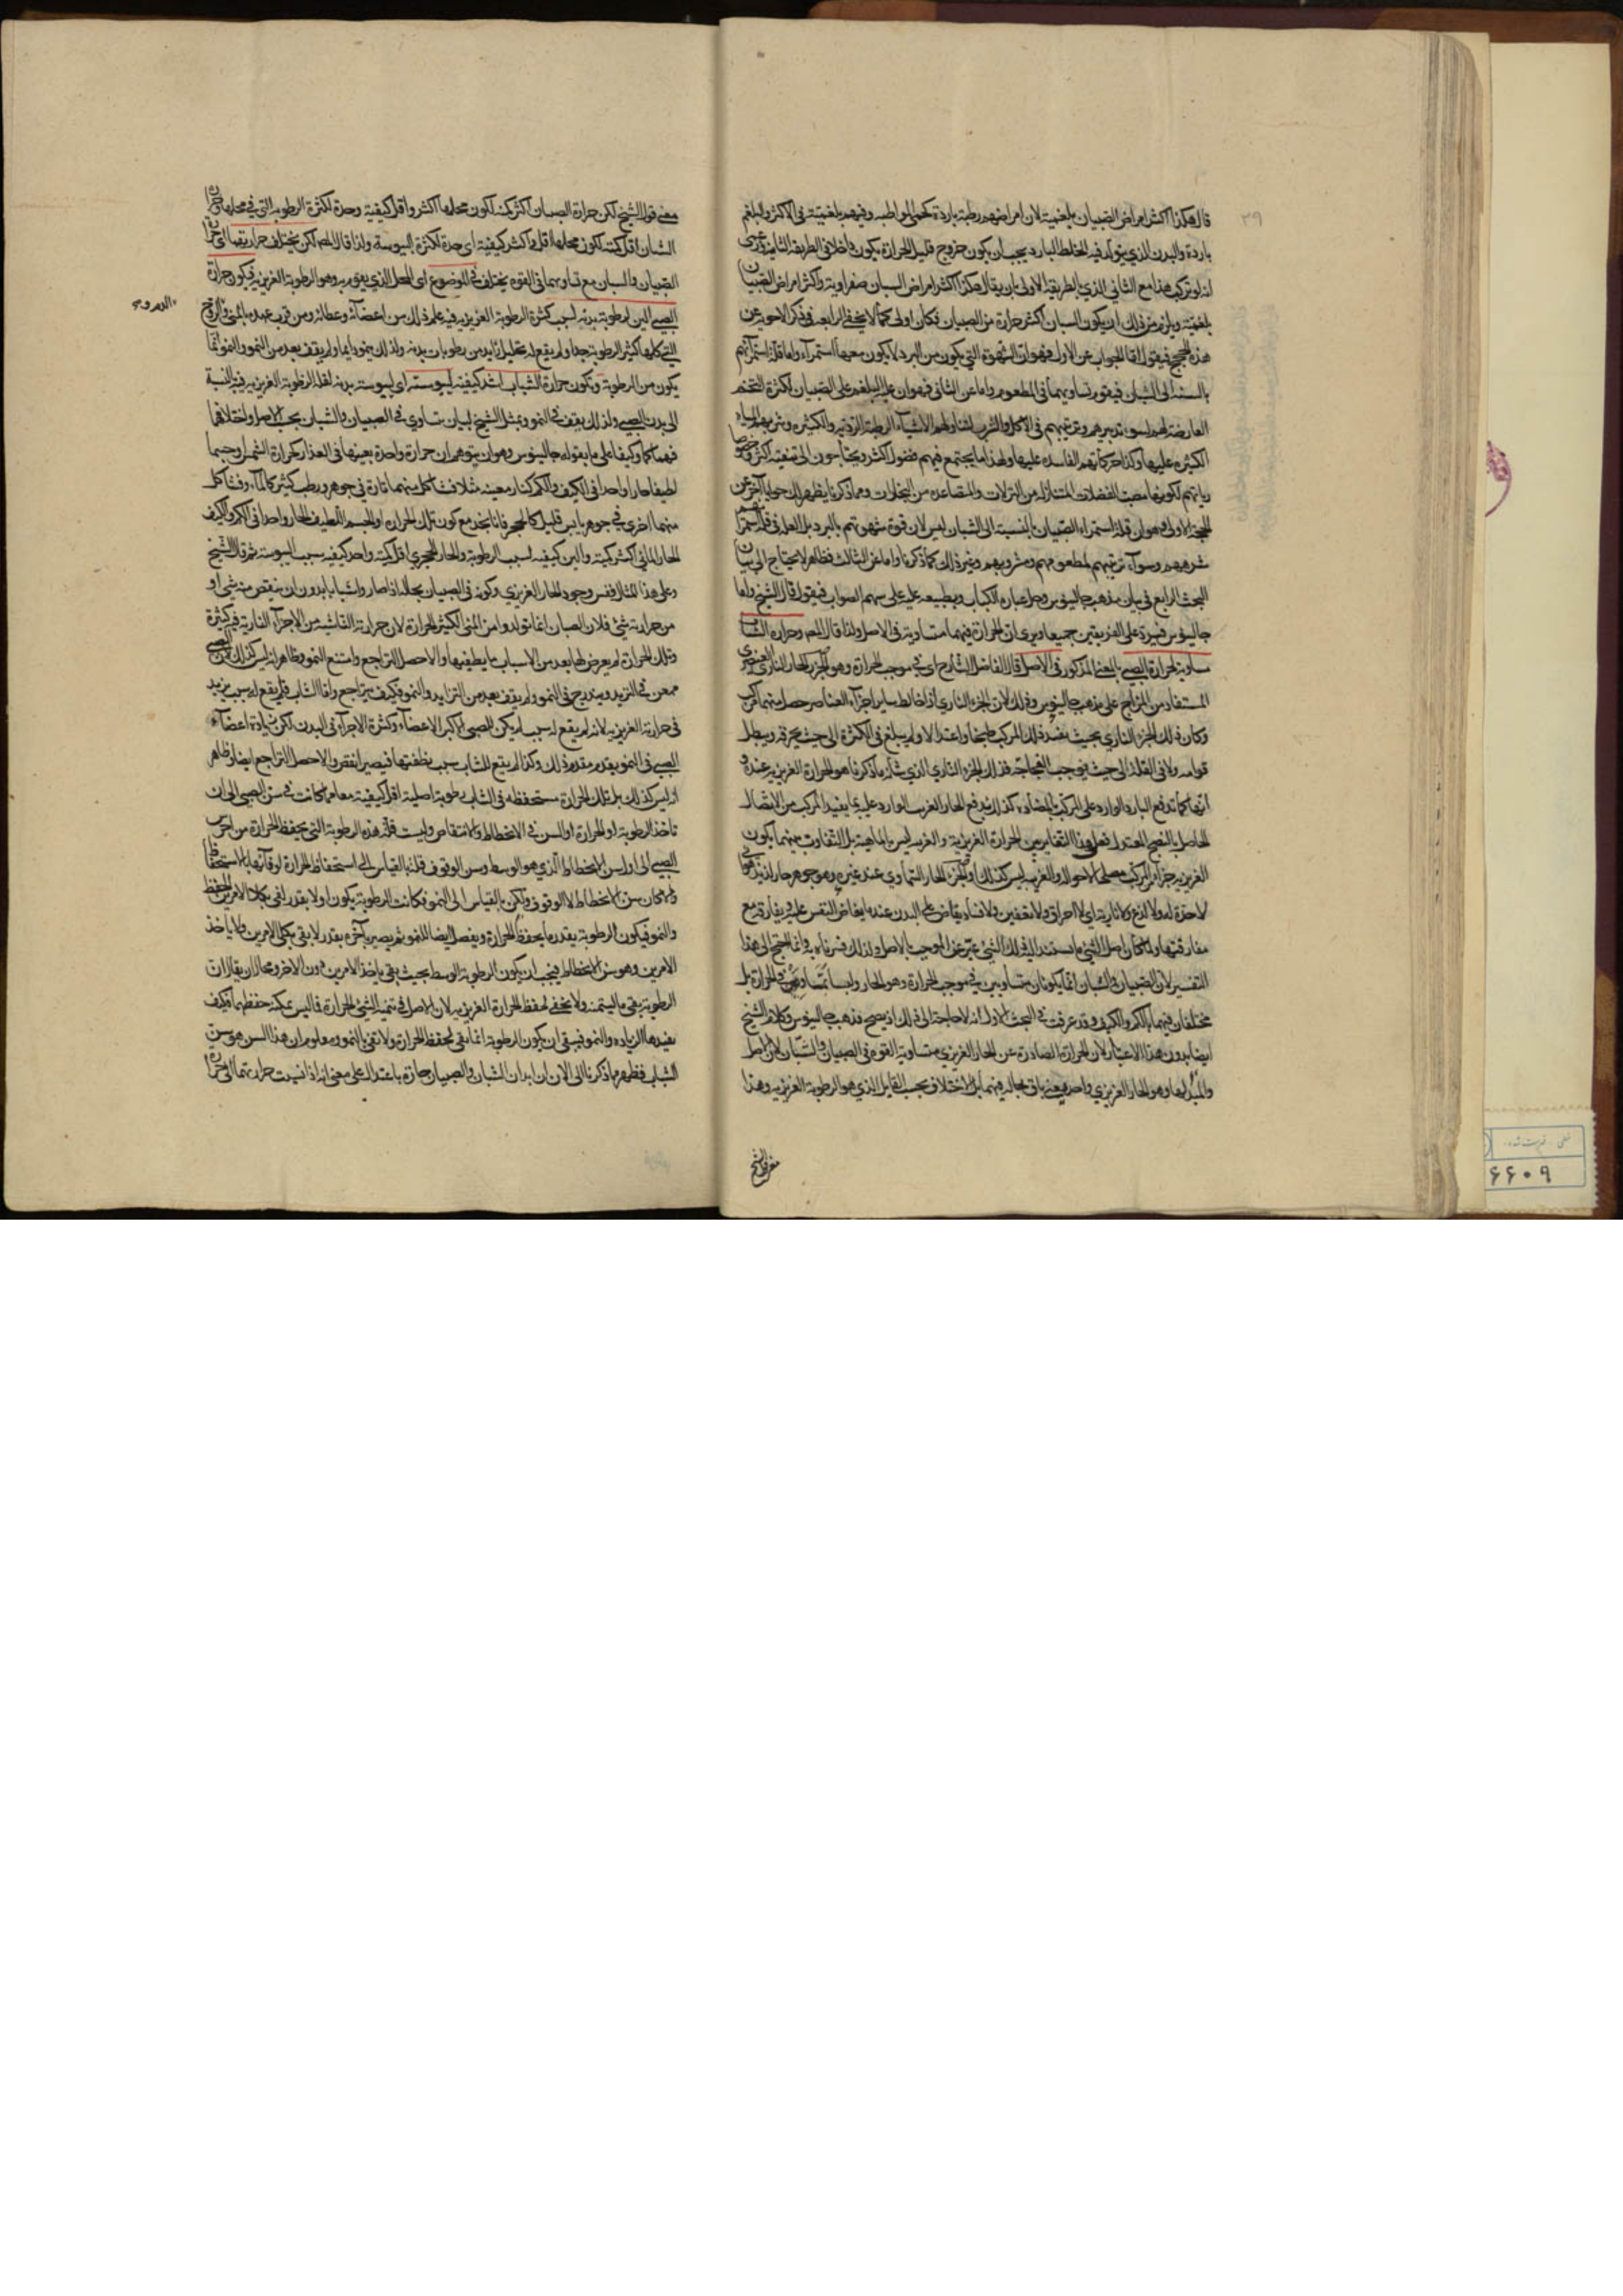 قال هكذا اكثر امراض الصبيان بلغمية لان امراضهم رطبة باردة كحمى المواظبه وقيهم بلغمية فى الاكثر والبلغم
باردة والبدن الذي يتولد فيه الخلط البارد يجب ان يكون خروج قليل الحرارة يكون داخلا فى الطريقة الثانيه
انه لو تركب هذا مع الثاني الذي بالطريقة الاولى بان يقال هكذا اكثر امراض الشبان صفراوية واكثر امراض الصبيان
بلغمية ويلزم من ذلك ان يكون الشبان اكثر حرارة من الصبيان فكان اولى كما لا يخفى الرابعه فى ذكر الاجوبه عن
هذه الحجج فيقول اما الجواب عن الاول فهو ان الشهوة التي يكون من البرد لا يكون معها استمرآء واما قلة استمرآئهم
بالنسبة الى الشبان فيقور تساويهما فى المطعوم واما عن الثانى فهو ان غلبة البلغم على الصبيان لكثرة التخم
العارضة لهم لسوء تدبيرهم وترتيبهم فى الاكل والشرب لتناولهم الاشيآء الرطبة الرديه والكثيره وشربهم المياه
الكثيرة عليها وكذا حركاتهم الفاسده عليها ولهذا ما يجتمع فيهم فضول اكثر ويحتاجون الى تنقية اكثر
رياتهم لكونها مصب الفضلات المتنازلة من النزلات والمتصاعده من البخارات ومما ذكرنا يظهر لك جواب آخر عن
الحجة الاولى وهو ان قلة استمراء الصبيان بالنسبة الى الشبان ليس لان قوة شهوتهم بالبرد بل العلة فى قلة استمرآ
شرههم وسوآء ترتيبهم لمطعومهم ومشروبهم وغير ذلك كما ذكرنا واما عن الثالث فظاهر لا يحتاج الى بيان
البحث الرابع فى بيان مذهب جالينوس وحل عبارة الكتاب وتطبيعه عليه على سهم الصواب فيقول قال الشيخ واما
جالينوس فيرد على الفريقين جميعا ويرى ان الحرارة فيهما متساوية فى الاصل ولذا قال المص وحرارة الشاب
مساوية لحرارة الصبي بالمعنى المذكور فى الاصل قال الفاضل الشارح اى فى موجب الحرارة وهو الجزء الحار الناري العنصرى
المستفاد من المزاج على مذهب جالينوس وذلك لان الجزء الناري اذا خالط ساير اجزآء العناصر حصل منهما مركب
وكان ذلك الجزء الناري بحيث يفيد ذلك المركب طبخا واعتدالا ولم يبلغ فى الكثرة الى حيث يحرقه ويبطل
قوامه ولا فى القلة الى حيث يوجب الفجاجة فذلك الجزء الناري الذي شأنه ما ذكرنا هو الحرارة الغريزيه عنده و
انها كما تدفع البارد الوارد على المركب بالمضادة كذلك يدفع الحار الغريب الوارد عليه بما يفيد المركب من الاتصال
الحاصل بالنضج المعتدل فعلى هذا التغاير بين الحرارة الغريزية والغريبة ليس بالماهية بل التفاوت بينهما بكون
الغريزيه جزأ من المركب مصلحا لاحواله والغريبه ليس كذلك والجزء الحار السماوي عند غيره وهو جوهر حار لذيذ هوائى
لا حدة له ولا لذع ولا نارية اي لا احراق ولا تعفين ولا فساد يفاض على البدن عندما يفاض النفس عليه ويفارقه مع
مفارقتها ولما كان اصل الشيئ ما يستند اليه ذلك الشيئ عبر عن الموجب بالاصل ولذلك فسرناه به وانما احتج الى هذا
التفسير لان الصبيان والشبان انما يكونان متساويين فى موجب الحرارة وهو الحار وليسا بمتساويين فى الحرارة بل
مختلفان فيهما بالكم والكيف وقد عرفت فى البحث الاول انه لا حاجة الى ذلك اذ يصح مذهب جالينوس وكلام الشيخ
ايضا بدون هذا الاعتبار لان الحرارة الصادرة عن الحار الغريزي متساوية القوة فى الصبيان والشبان لان الاصل
والمبدأ لها وهو الحار الغريزي واحد بعينه باق بحاله فيهما بل الاختلاف بحسب القابل الذي هو الرطوبة الغريزيه وهذا
معنى قول الشيخ
معنى قول الشيخ لكن حرارة الصبيان اكثر كمية لكون محلها اكثر واقل كيفية وحدة لكثرة الرطوبه التي فى محلها وحرارة
الشبان اقل كمية لكون محلها اقل واكثر كيفية اى حدة لكثرة اليبوسة ولذا قال المص لكن يختلف حرارتهما اى حرارة
الصبيان والشبان مع تساويهما فى القوه يختلف فى الموضوع اى المحل الذي يقوم به وهو الرطوبة الغريزيه فيكون حرارة
الصبي الين لرطوبة بدنه لسبب كثرة الرطوبة الغريزيه فيه علم ذلك من اعضآئه وعظامه ومن قرب عهده بالمنى والروح
التي كلها كثير الرطوبة جدا ولم يقع له تحليل زايد من رطوبات بدنه ولذلك ينمو دايما ولم يقف بعد من النمو والنمو انما
يكون من الرطوبة ويكون حرارة الشباب اشد كيفية ليبوسته اى ليبوسة بدنه لقلة الرطوبة الغريزيه فيه بالنسبة
الى بدن الصبي ولذلك يقف فى النمو ويمثل الشيخ لبيان تساوي فى الصبيان والشبان بحسب الاصل واختلافهما
فيهما كما وكيفا على ما يقوله جالينوس وهو ان يتوهم ان حرارة واحدة بعينها فى المقدار كحرارة الشمس او جسما
لطيفا حارا واحدا فى الكيف والكم كنار معينه مثلا فشا كل منهما تارة فى جوهر رطب كثير كالمآء وفشا كل
منهما اخرى فى جوهر يابس قليل كالحجر فانا نجد مع كون تلك الحرارة او الجسم اللطيف الحار واحدا فى الكم والكيف
الحار المائي اكثر كمية والين كيفيه لسبب الرطوبة والحار الحجري اقل كمية واحد كيفيه بسبب اليبوسة ثم قال الشيخ
وعلى هذا المثال فقس وجود الحار الغريزي وكونه فى الصبيان بحاله اذا صاروا شبابا بدون ان ينقص منه شى او
من حرارته شئ فلان الصبيان انما تولدوا من المنى الكثير الحرارة لان حرارته الناشئه من الاجزآء النارية فيه كثيرة
وتلك الحرارة لم يعرض لها بعد من الاسباب ما يطفيها والا حصل التراجع وامتنع النمو وظاهر انه ليس كذلك فان الصبي
ممعن فى التزيد ومتدرج فى النمو ولم يقف بعد من التزايد والنمو فكيف يتراجع واما الشاب فلم يقع له سبب يزيد
فى حرارته الغريزيه لانه لم يقع له سبب لم يكن للصبي الا كبر الاعضآء وكثرة الاجزآء فى البدن لكن زيادة اعضآء
الصبي فى النمو يقدر بمقدر ذلك وكذا لم يقع للشاب سبب يطفئها فيصير انقص والا حصل التراجع ايضا وظاهر
انه ليس كذلك بل تلك الحرارة مستحفظه فى الشاب رطوبة اصلية اقل كيفية معا مما كانت فى سن الصبي الى ان
تاخذ الرطوبة او الحرارة او السن فى الانحطاط والانتقاص وليست قلة هذه الرطوبة التى يحفظ الحرارة من آخر سن
الصبي الى اول سن الانحطاط الذي هو الوسط وسن الوقوف قلة بالقياس الى استحفاظ الحرارة لوفائها بالاستحفاظ
والا كان سن الانحطاط لا الوقوف ولكن بالقياس الى النمو فكانت الرطوبة يكون اولا بقدر تفى بكلا الامرين الحفظ
والنمو فيكون الرطوبة بقدر ما يحفظ الحرارة ويفضل ايضا للنمو ثم يصير بآخره بقدر لا يفى بكلى الامرين ولا ياخذ
الامرين وهو سن الانحطاط فيجب ان يكون الرطوبة الوسط بحيث يفى باحد الامرين دون الاخر ومحال ان يقال ان
الرطوبة يفى ما لتنميه ولا يحفى لحفظ الحرارة الغريزيه لان الاصل فى تنمية الشئ الحرارة فما ليس يمكنه حفظها فكيف
يفيدها الزياده والنمو فبقى ان يكون الرطوبة انما يفى لحفظ الحرارة ولا تفى بالنمو ومعلوم ان هذا السن هو سن
الشباب فظهر مما ذكرنا الى الان ان ابدان الشبان والصبيان حارة باعتدال على معنى انه اذا نسبت حرارتهما الى حرارة
٦٦٠٩